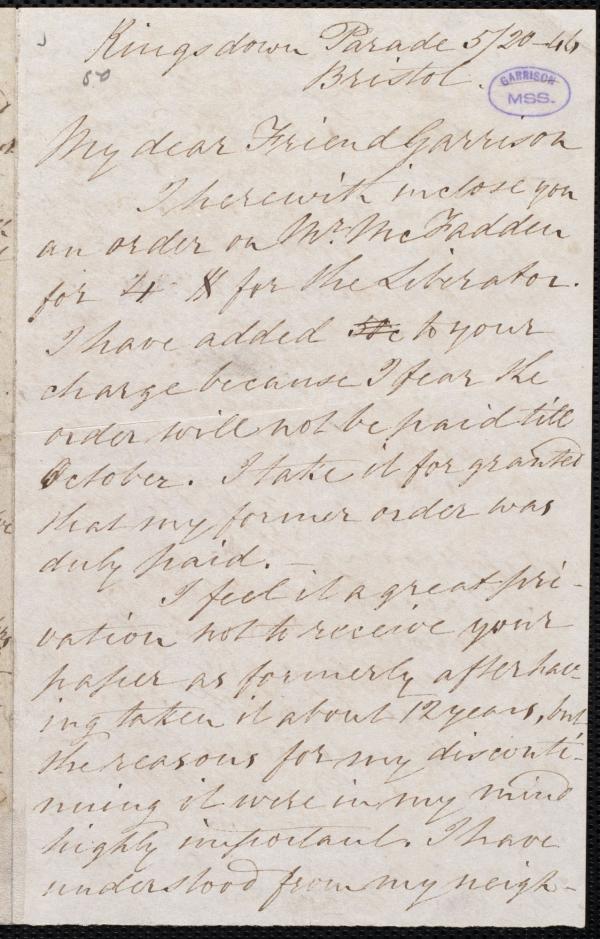 Kingsdown Parade 5/20-46
Bristol.
GARRISON
MSS.
My dear Friend Garrison
I herewith inclose you
an order on Mr. McFadden
for 4 $ for the Liberator.
I have added to your
charge because I fear the
order will not be paid till
October. I take it for granted
that my former order was
duly paid. —
I feel it a great pri-
vation not to receive your
paper as formerly after hav-
ing taken it about 12 years, but
the reasons for my disconti-
nuing it were in my mind
highly important. I have
understood from my neigh-